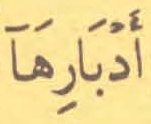 أَدْبَارِهَآ